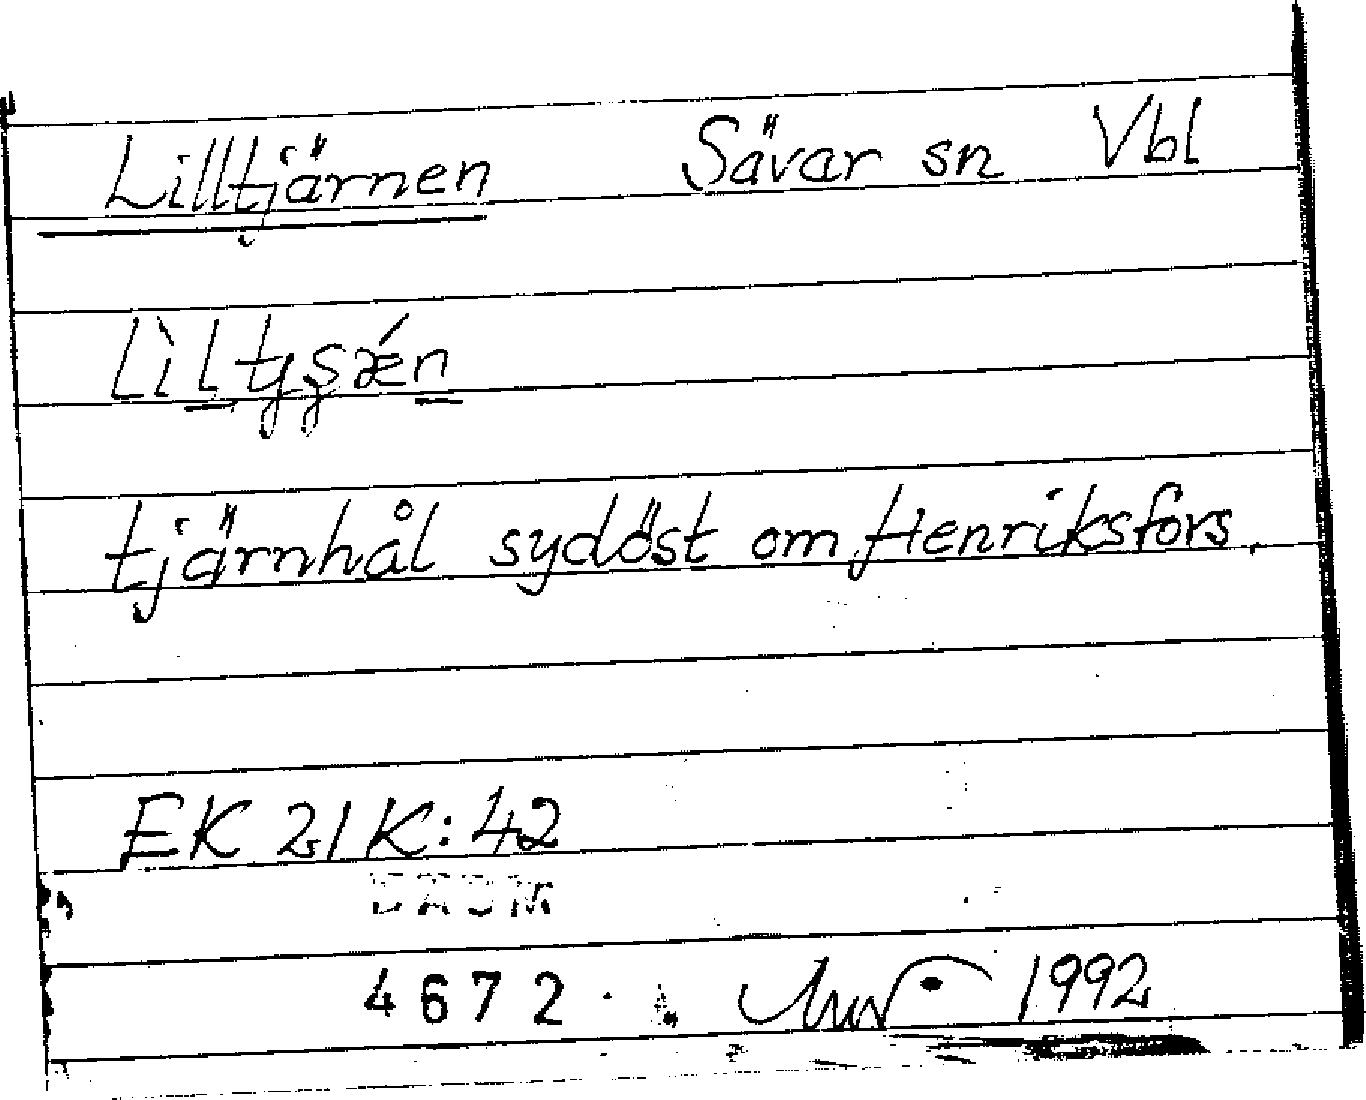 Lilltjärnen Sävar sn Vbl
tjärnhål sydöst om Henriksfors.
EK 21K:42
DAUM
4672 1992